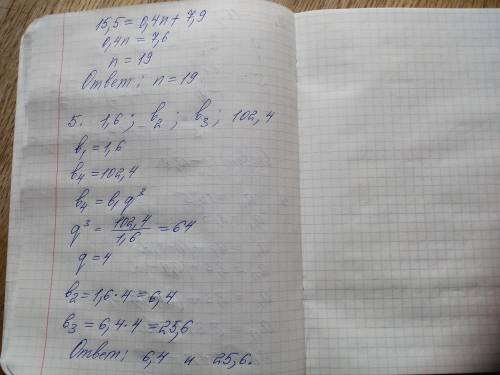 15,5 = 0,4n + 7,9
0,4n = 7,6
n = 19
Ответ: n = 19
5. 1,6 ; b₂ ; b₃ ; 102,4
b₁ = 1,6
b₄ = 102,4
b₄ = b₁ q³
q³ = 102,4/1,6 = 64
q = 4
b₂ = 1,6 · 4 = 6,4
b₃ = 6,4 · 4 = 25,6
Ответ: 6,4 и 25,6.